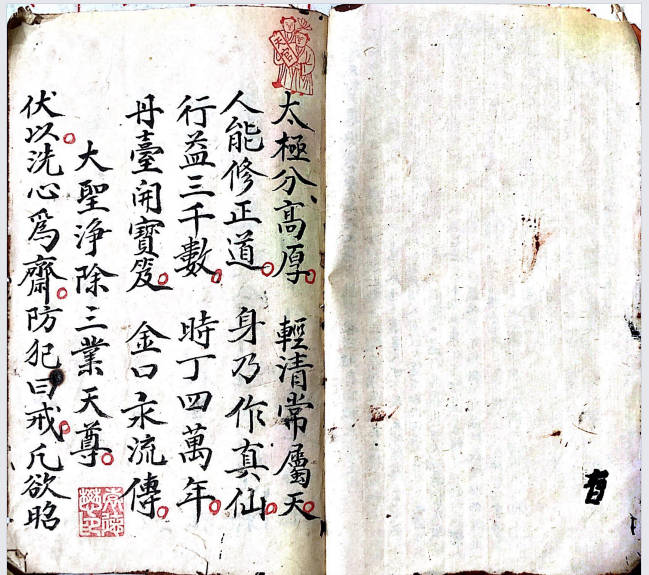 太極分高厚。輕清常屬天。
人能修正道。身乃作真仙。
行益三千數。時丁四萬年。
丹臺開寶笈。金口永流傳。
大聖浄除三業天尊。
伏以。洗心爲齋。防犯曰戒。凡欲昭